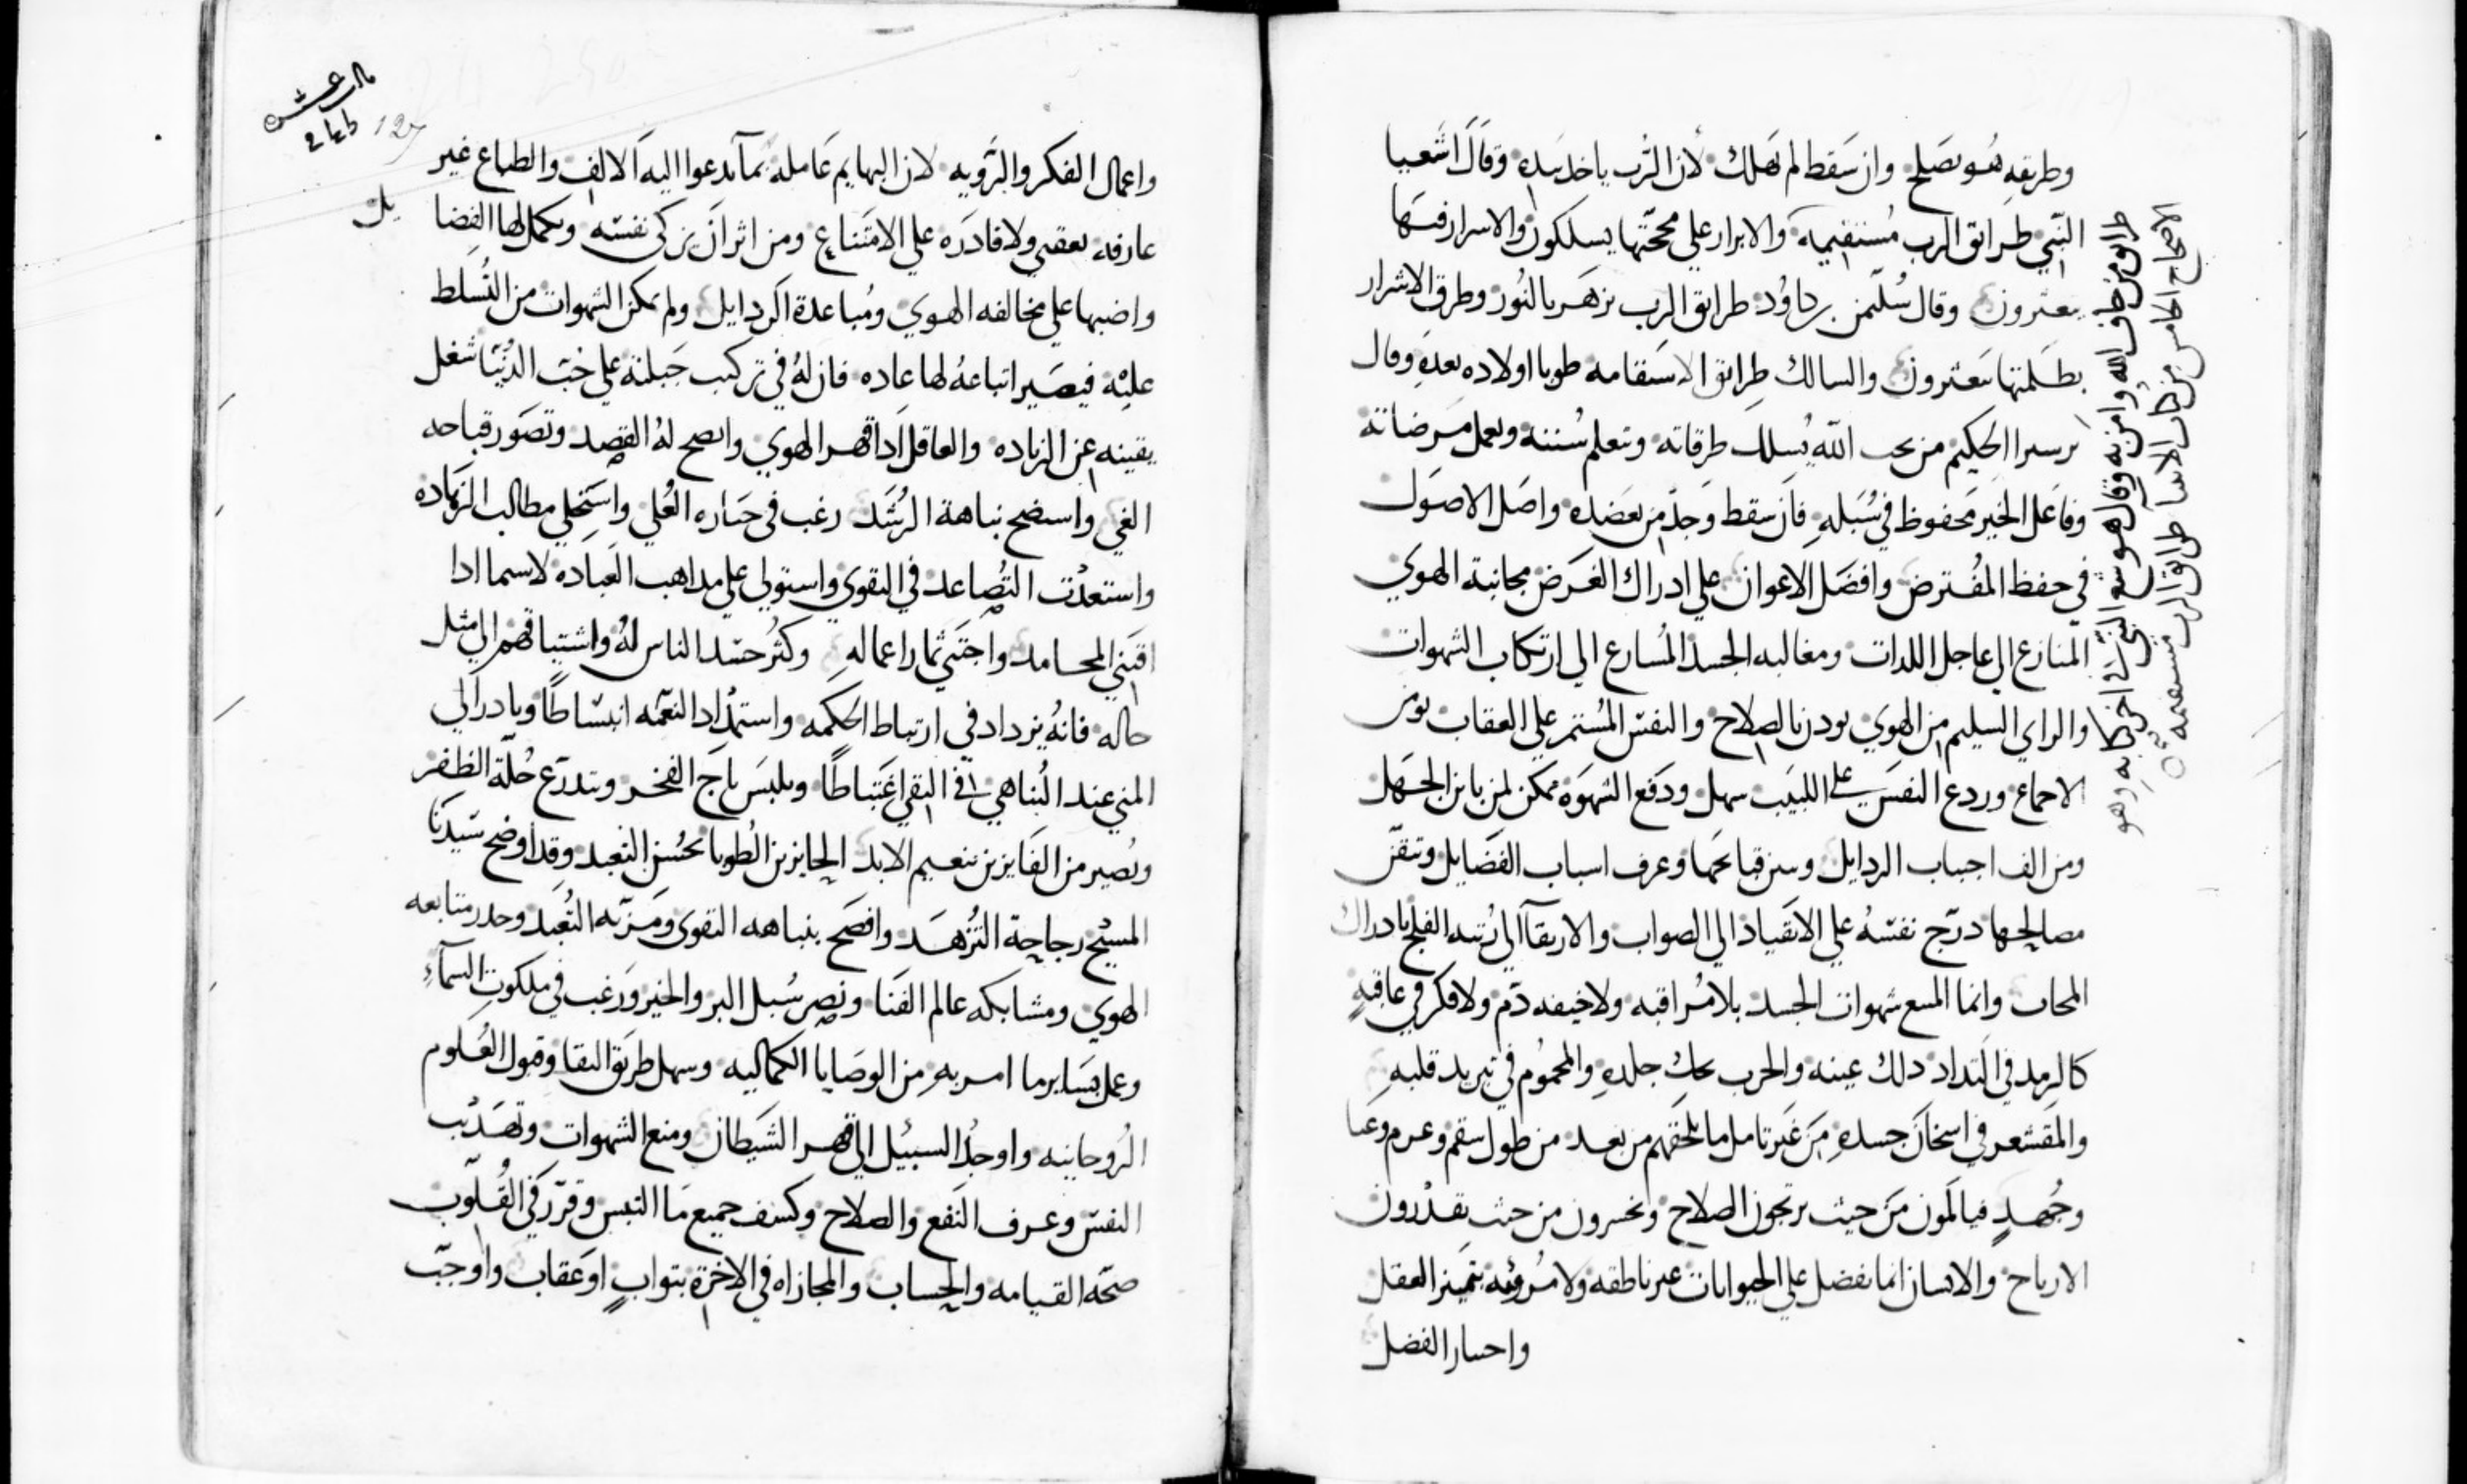 وطريقه هو يصلح وان سقط لم يهلك لان الرب ياخد بيده وقال اشعيا
النبي طرايق الرب مستقيمه والابرار علي محجتها يسلكون والاسرار فيها
يعترون وقال سليمن بن داود طرايق الرب تزهر بالنور وطرق الاشرار
بظلمتها يتعترون والسالك طرايق الاستقامه طوبا اولاده بعده وقال
برسيرا الحكيم من يحب الله يسلك طرقاته ويتعلم سننه ويعمل مرضاته
وفاعل الخير محفوظ في سبله فان سقط وجد من يعضده واصل الاصول
في حفظ المفترض وافضل الاعوان علي ادراك الغرض مجانبة الهوي
المنازع الي عاجل اللدات ومغالبه الجسد المسارع الي ارتكاب الشهوات
والراي السليم من الهوي يودن بالصلاح والنفس المستمر علي العقاب
وردع النفس على اللبيب سهل ودفع الشهوه ممكن لمن باين الجهل
ومن الف اجتناب الردايل وسن قبايحها وعرف اسباب الفضايل وتيقن
مصالحها درج نفسه علي الانقياد الي الصواب والارتقآ الي رتبه الفلج بادراك
المحاب وانما المتبع شهوات الجسد بلا مراقبه ولا خيفه دم ولا فكر في عاقبه
كالرمد في التداد دلك عينه والجرب بحك جلده والمحموم في تبريد قلبه
والمقشعر في اسخان جسده من غير تامل ما يلحقهم من بعد من طول سقم وعرم وعنا
وجهد فيالمون من حيث يرتجون الصلاح ويخسرون من حيث يقدرون
الارباح والانسان انما يفضل علي الحيوانات غير ناطقه ولا مرويه بتمييز العقل
واختيار الفضل
طرايق من خاف الله وامن به وقال هوشع النبي في اخر كتابه وهو
الاصحاح الخامس من كتاب الانبيا طرايق الرب مستقيمه
واعمال الفكر والرويه لان البهايم عامله بما تدعوا اليه الالف والطباع غير
عارفه بعقبي ولا قادره علي الامتناع ومن اثر ان يزكي نفسه ويكمل لها الفضا
يل
علي مخالفه الهوي ومباعدة الردايل ولم يمكن الشهوات من التسلط
عليه فيصير اتباعه لها عاده فان له في تركيب جبلته علي حب الدنيا شغل
يقينه عن الزياده والعاقل ادا قهر الهوي واتضح له القصد وتصور قباحه
الغي واستوضح نباهة الرشد رغب في حيازه العلي واستحلي مطالب الزهاده
واستعدب التصاعد في التقوي واستولي علي مداهب العباده لاسيما ادا
اقتني المحامد واجتني ثمار اعماله وكثر حسد الناس له واشتياقهم الي مثل
حاله فانه يزداد في ارتباط الحكمه واستمداد النعمه انبساطا ويبادر الي
المني عند التناهي في التقي اغتباطا ويلبس تاج الفخر ويتدرع حلة الظفر
ويصير من الفايزين بنعيم الابد الحايزين الطوبا بحسن التعبد وقد اوضح سيدنا
المسيح رجاجة التزهد وافصح بنباهه التقوي ومزيه التعبد وحدر متابعه
الهوي ومشابكه عالم الفنا وبصر سبل البر والخير ورغب في ملكوت السمآء
وعمل بساير ما امر به من الوصايا الكماليه وسهل طريق التقا وقبول العلوم
الروحانيه واوجد السبيل الي قهر الشيطان ومنع الشهوات وتهديب
النفس وعرف النفع والصلاح وكشف جميع ما التبس وقرر في القلوب
صحه القيامه والحساب والمجازاه في الاخرة بتواب او عقاب واوجب